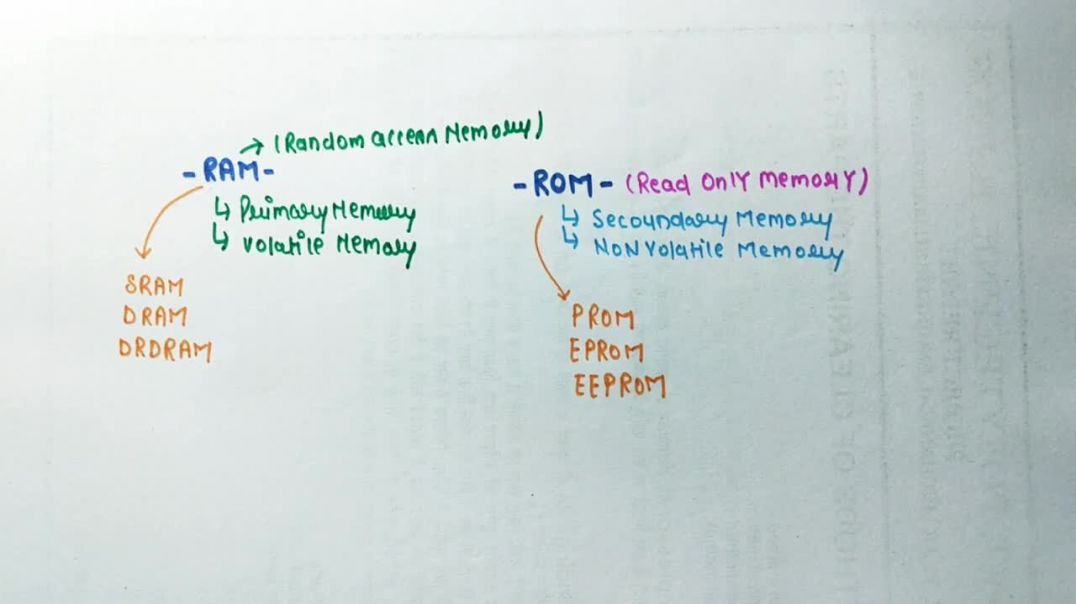 → (Random access Memory)
- RAM -
↳ Primary Memory
↳ Volatile Memory
SRAM
DRAM
DRDRAM
- ROM - (Read Only Memory)
↳ Secoundary Memory
↳ NON Volatile Memory
PROM
EPROM
EEPROM